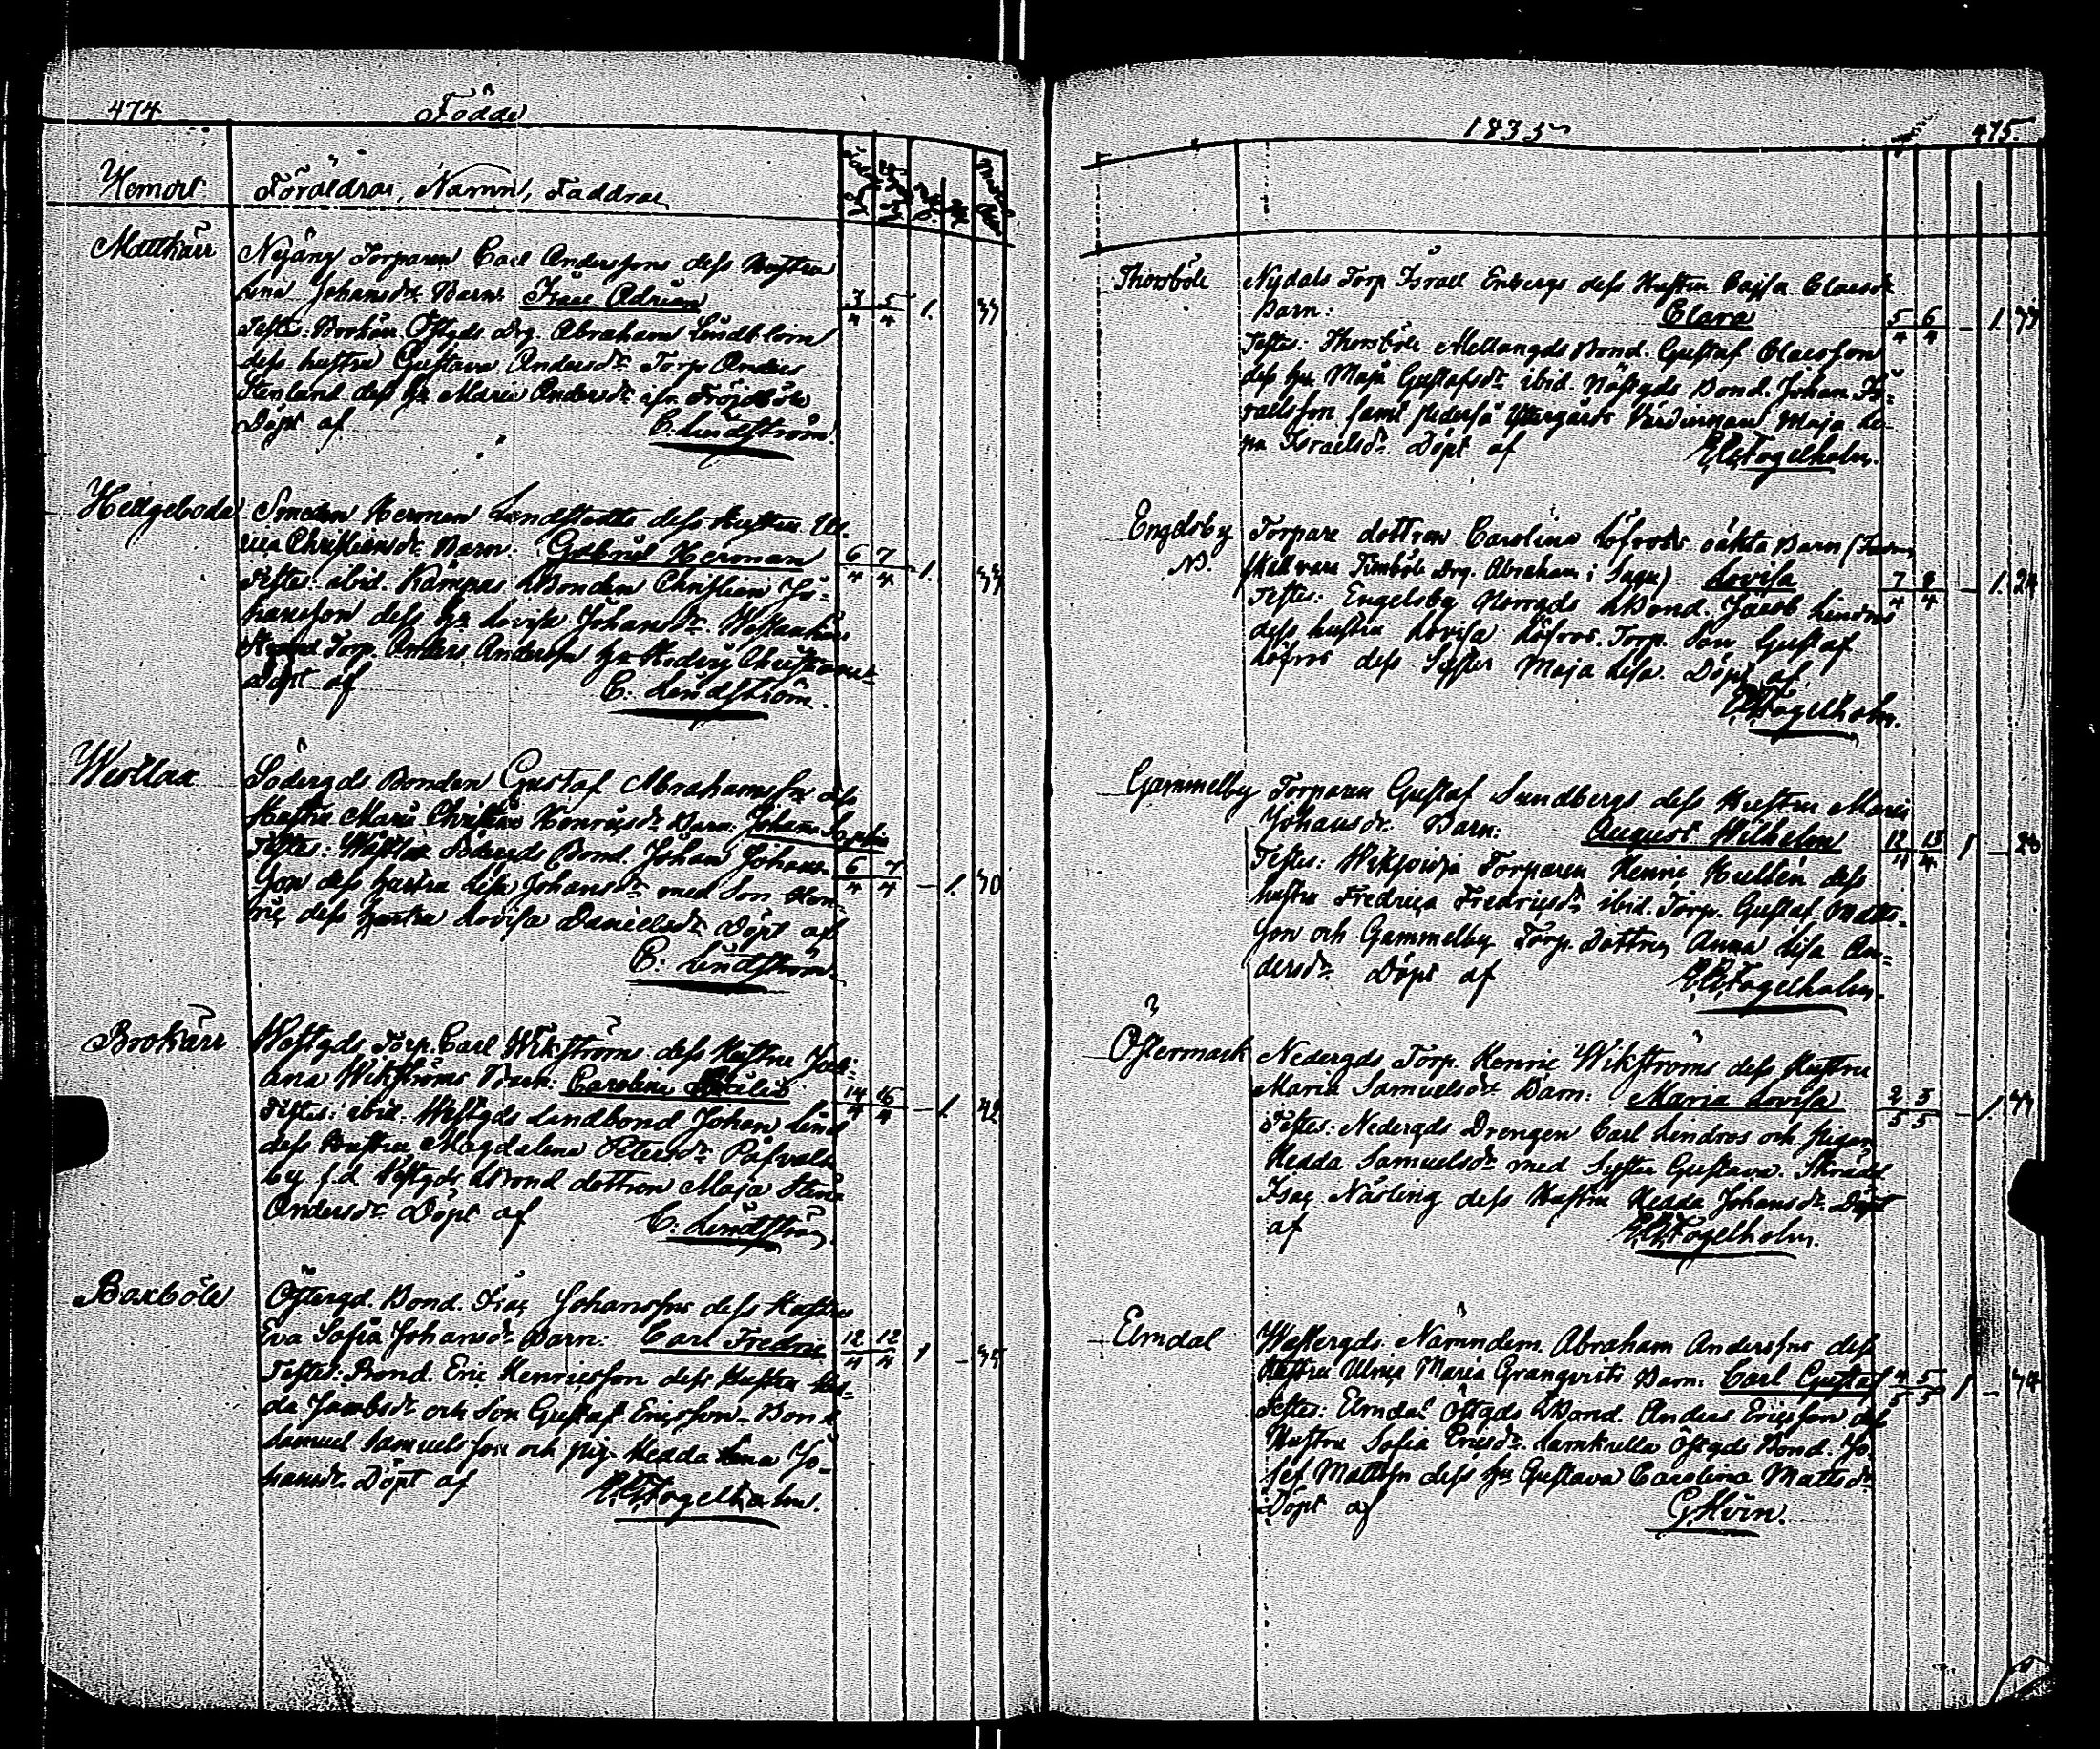 474
Födde
Hemort
Föräldrar, Namn, Faddrar
Mattkärr
Nyäng Torparen Carl Anderssons dess Hustru
Lena Johansdr. Barn: Isaac Adrian
3/4 5/4 1. 33
Testes: Brokärr Östgds Drg. Abraham Lindblom
dess hustru Gustava Andersdr. Torp. Anders
Stenlund dess hu Maria Andersdr. ifr. Fröjdböle
Döpt af C. Lindström.
Hellgeboda
Smeden Herman Landstedts dess Hustru Ul-
rica Christiansdr. Barn: Gabriel Herman
6/4 7/4 1. 33
Testes: ibid. Kämpas LBonden Christian Jo-
hansson dess hu Lovisa Johansdr.
Torp. Anders Anderson hu Hedvig
Döpt af C. Lindström.
Westlax
Södergds Bonden Gustaf Abrahamssn dess
Hustru Maria Christina Henricsdr. Barn: Johan
Testes: Westlax Södergds Bond. Johan Johans-
6/4 7/4 – 1. 30
son dess hustru Lisa Johansdr. med Son Hen-
ric dess hustru Lovisa Danielsdr. Döpt af
C. Lindström
Brokärr
Westgds Torp. Carl Wikströms dess Hustru Juli-
ana Wikströms Barn: Carolina
14/4 16/4 – 1. 42
Testes: ibid. Westgds Landbond Johan Lind
dess Hustru Magdalena Petersdr. Påfvals-
by f.d. Westgds LBond dottren Maja Stina
Andersdr. Döpt af C. Lindström.
Baxböle
Östergd. Bond. Isac Johanssns dess Hustru
Eva Sofia Johansdr. Barn: Carl Fredric
12/4 12/4 1 – 35
Testes: Bond. Eric Henricsson dess Hustru Hed-
da Jacobsdr. och Son Gustaf Ericsson. Bond
Samuel Samuelsson och pig. Hedda Lena Jo-
hansdr. Döpt af Fogelholm.
1835
475.
Thorsböle
Nydals Torp. Israel Enbergs dess Hustru Cajsa Claesdr
Barn: Clara
5/4 6/4 – 1. 33
Testes: Thorsböle Mellangds Bond. Gustaf Claesson
dess hu. Maja Gustafsdr. ibid. Nöstgds Bond. Johan Is-
raelsson samt Pederså Yttergårds Värdinnan Maja Le-
na Israelsdr. Döpt af Fogelholm.
Engelsby
N.
Torpare dottren Carolina Löfroos oäkta Barn (Fadren
skall vara Finnböle Drg. Abraham i Sagu) Lovisa
7/4 8/4 – 1. 24
Testes: Engelsby Norrgds LBond. Jacob Lindros
dess hustru Lovisa Löfros. Torp. Son Gustaf
Löfros dess Syster Maja Lisa. Döpt af
Fogelholm.
Gammelby
Torparen Gustaf Sundbergs dess Hustru Maria
Johansdr. Barn: August Wilhelm
12/4 13/4 1 – 28
Testes: Torparen Henric Hulten dess
hustru Fredrica Fredricsdr. ibid. Torp. Gustaf Matts-
son och Gammelby Torp. Dottren Anna Lisa An-
dersdr. Döpt af Fogelholm.
Östermark
Nedergds Torp. Henric Wikströms dess Hustru
Maria Samuelsdr. Barn: Maria Lovisa
2/5 3/5 – 1. 44
Testes: Nedergds Drengen Carl Lindros och pigan
Hedda Samuelsdr. med Syster Gustava. Skrädd.
Isac Näsling dess Hustru Hedda Johansdr. Döpt
af Fogelholm.
Elmdal
Westergds Nämndem. Abraham Anderssns dess
Hustru Ulrica Maria Granqvists Barn: Carl Gustaf
4/5 5/5 1 – 34
Testes: Elmdal Östgds LBond. Anders Ericsson dess
Hustru Sofia Ericsdr. Lamkulla Östgds Bond. Jo-
sef Mattssn dess hu Gustava Carolina Mattsdr
Döpt af